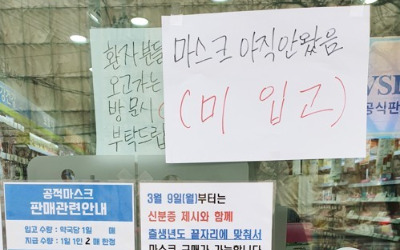 마스크 아직안왔음
(미 입고)
환자분들
오고가는
방문시
부탁드립
공적마스크
판매관련안내
입고 수량 : 약국당 1일 매
지급 수량 : 1일 1인 2 매 한정
3월 9일(월)부터는
신분증 제시와 함께
출생년도 끝자리에 맞춰서
마스크 구매가 가능합니다
VS
공식판